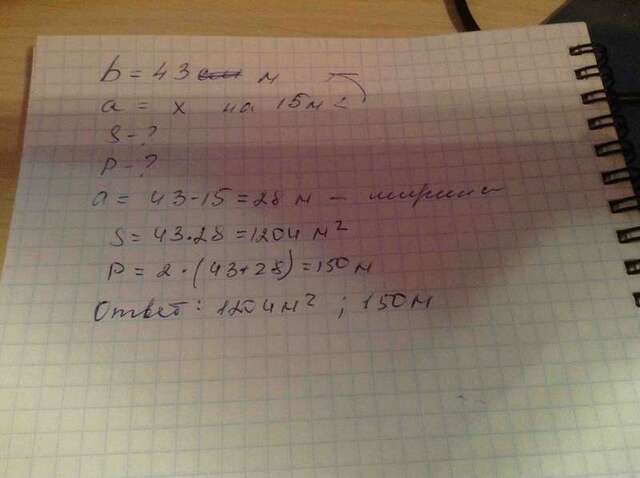 b = 43 м
a = x на 15м <
S - ?
P - ?
a = 43 - 15 = 28 м - ширина
S = 43 · 28 = 1204 м²
P = 2 · (43 + 28) = 150 м
Ответ: 1204 м² ; 150 м